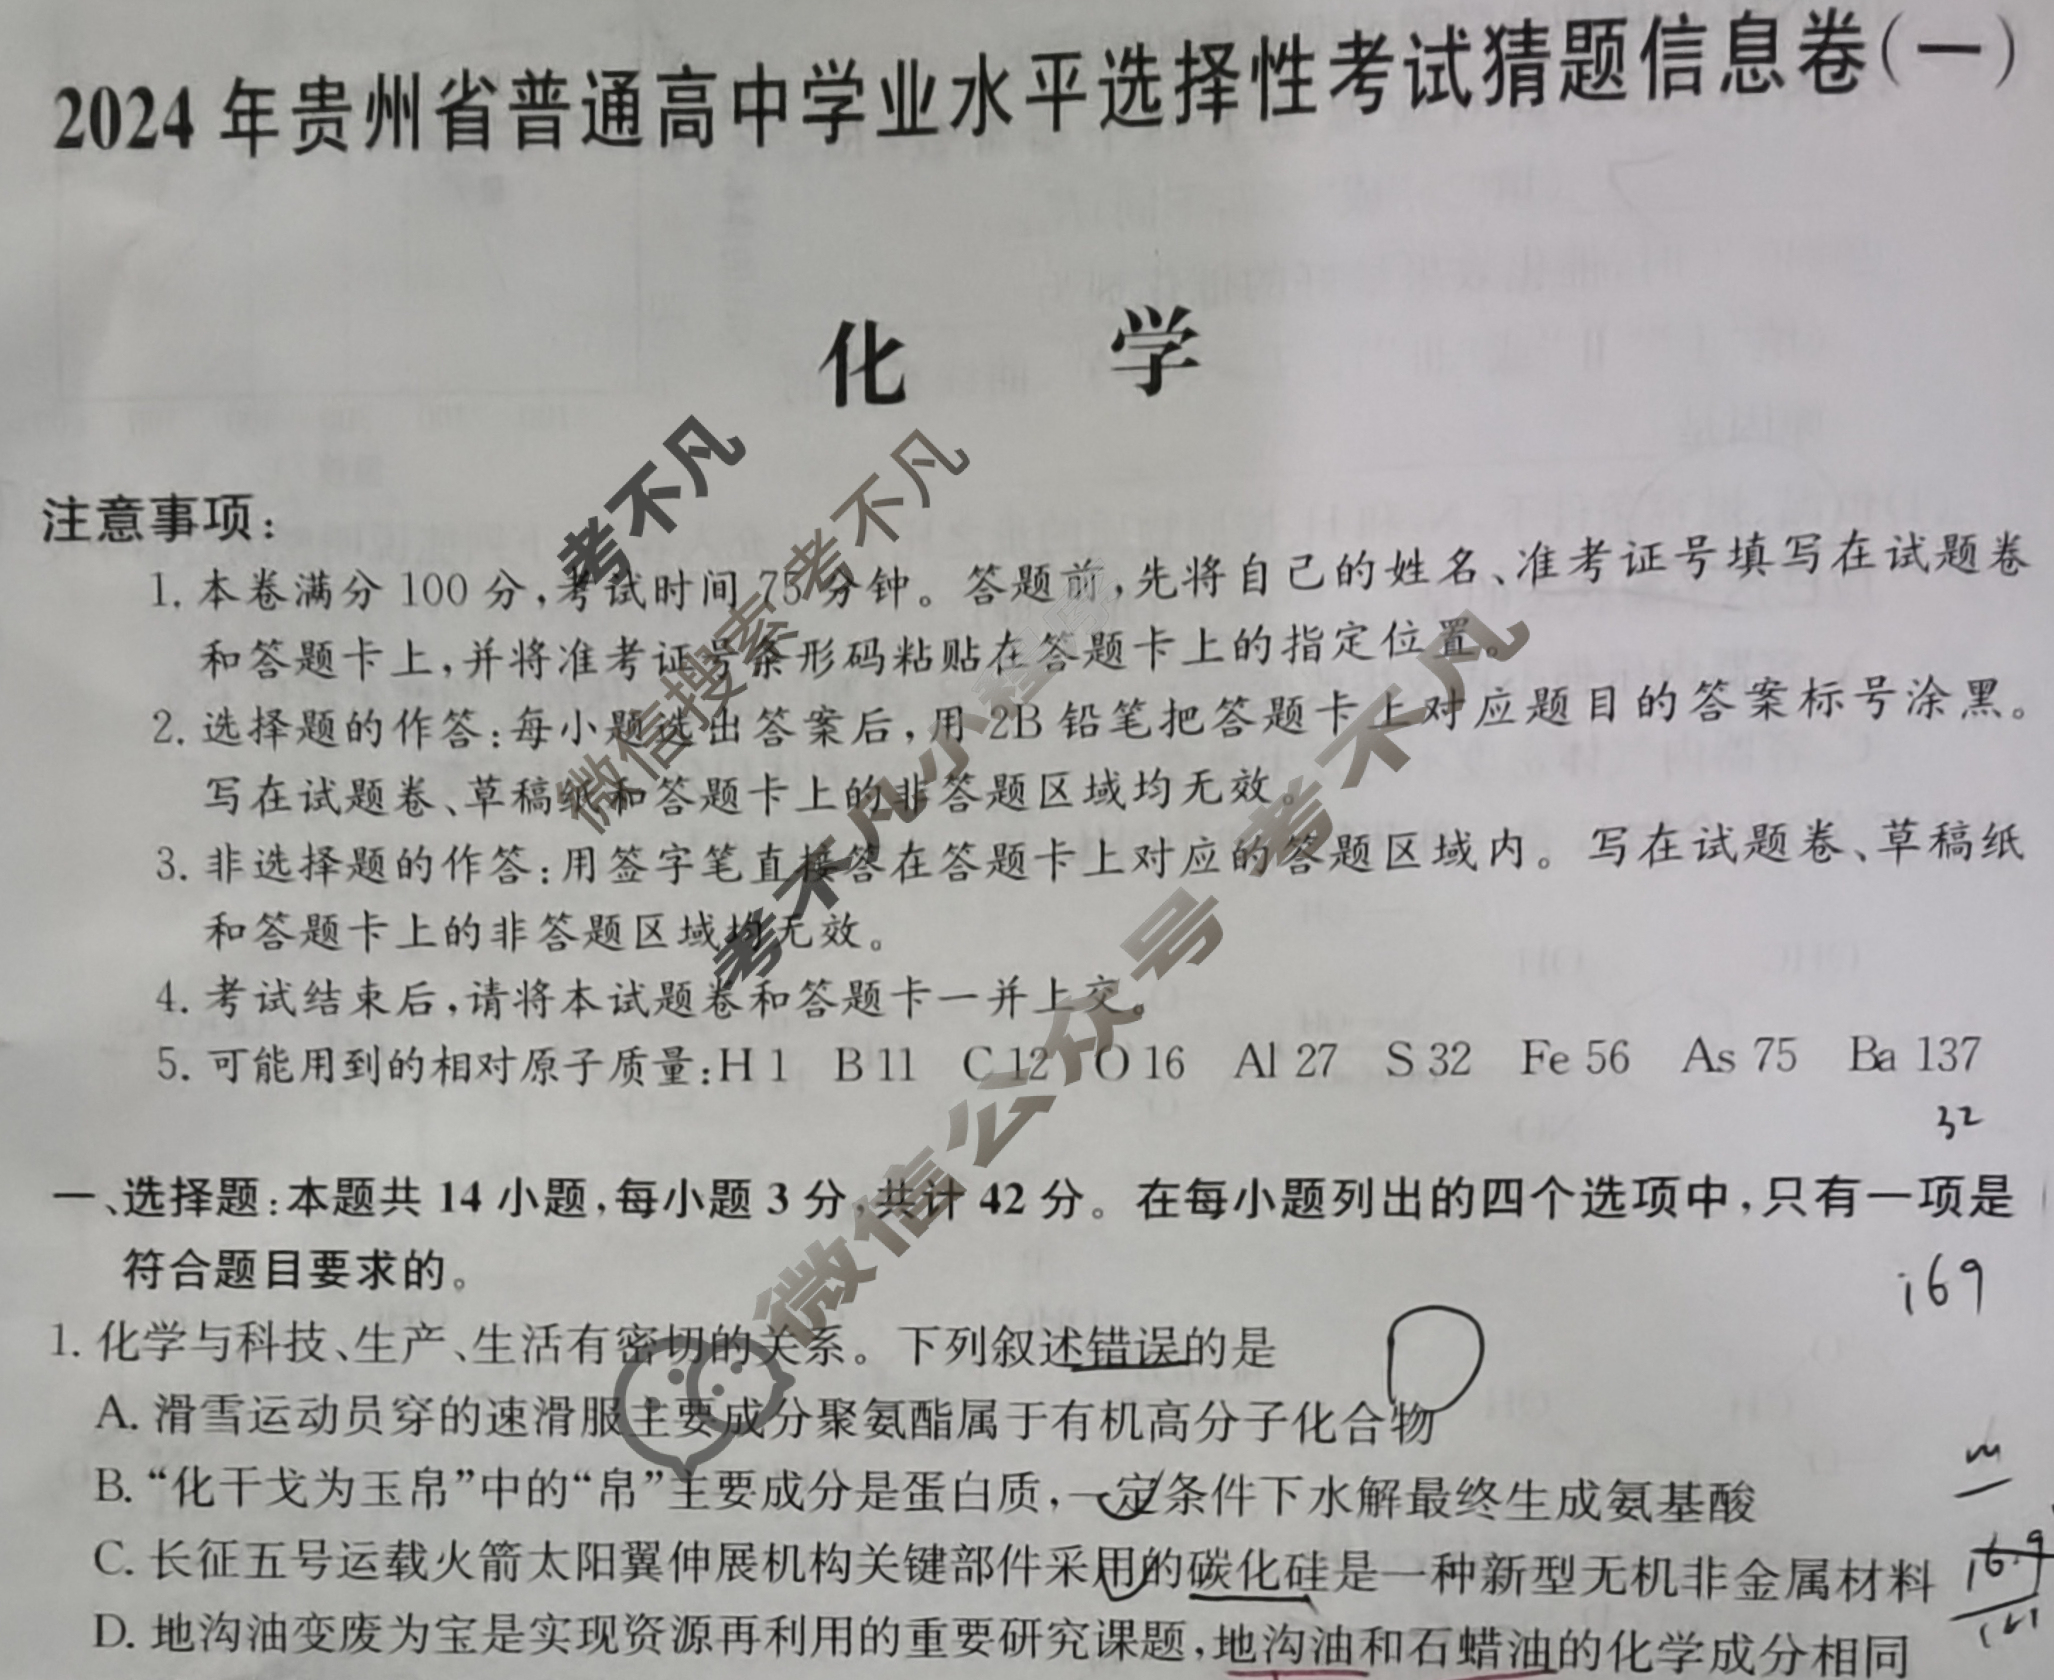 2024年贵州省普通高中学业水平选择性考试猜题信息卷(一)
化 学
注意事项:
1. 本卷满分 100 分,考试时间 75 分钟。答题前,先将自己的姓名、准考证号填写在试题卷
和答题卡上,并将准考证号条形码粘贴在答题卡上的指定位置。
2. 选择题的作答:每小题选出答案后,用 2B 铅笔把答题卡上对应题目的答案标号涂黑。
写在试题卷、草稿纸和答题卡上的非答题区域均无效。
3. 非选择题的作答:用签字笔直接答在答题卡上对应的答题区域内。写在试题卷、草稿纸
和答题卡上的非答题区域均无效。
4. 考试结束后,请将本试题卷和答题卡一并上交。
5. 可能用到的相对原子质量:H 1 B 11 C 12 O 16 Al 27 S 32 Fe 56 As 75 Ba 137
32
一、选择题:本题共 14 小题,每小题 3 分,共计 42 分。在每小题列出的四个选项中,只有一项是
符合题目要求的。
169
1. 化学与科技、生产、生活有密切的关系。下列叙述错误的是
A. 滑雪运动员穿的速滑服主要成分聚氨酯属于有机高分子化合物
B. “化干戈为玉帛”中的“帛”主要成分是蛋白质,一定条件下水解最终生成氨基酸
C. 长征五号运载火箭太阳翼伸展机构关键部件采用的碳化硅是一种新型无机非金属材料
D. 地沟油变废为宝是实现资源再利用的重要研究课题,地沟油和石蜡油的化学成分相同
考不凡
微信搜索 考不凡
考不凡小程序
微信公众号 考不凡